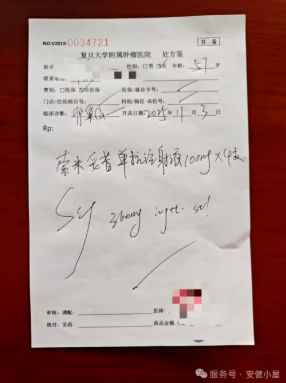 NO:V2019-0034721
自备
复旦大学附属肿瘤医院 处方笺
姓名 性别:□男 女 年龄:57岁
联系电
费别:□医保 非医保 医保/就诊卡号:
门诊/住院病历号: 科别/病区-床位号:
临床诊断: 卵巢Ca 开具日期2025年11月3日
Rp:
索米妥昔单抗注射液100mg×4支
Sig 360mg ivgtt. st!
审核、调配: 医师:
核对、发药: 药品金额
服务号·安健小屋